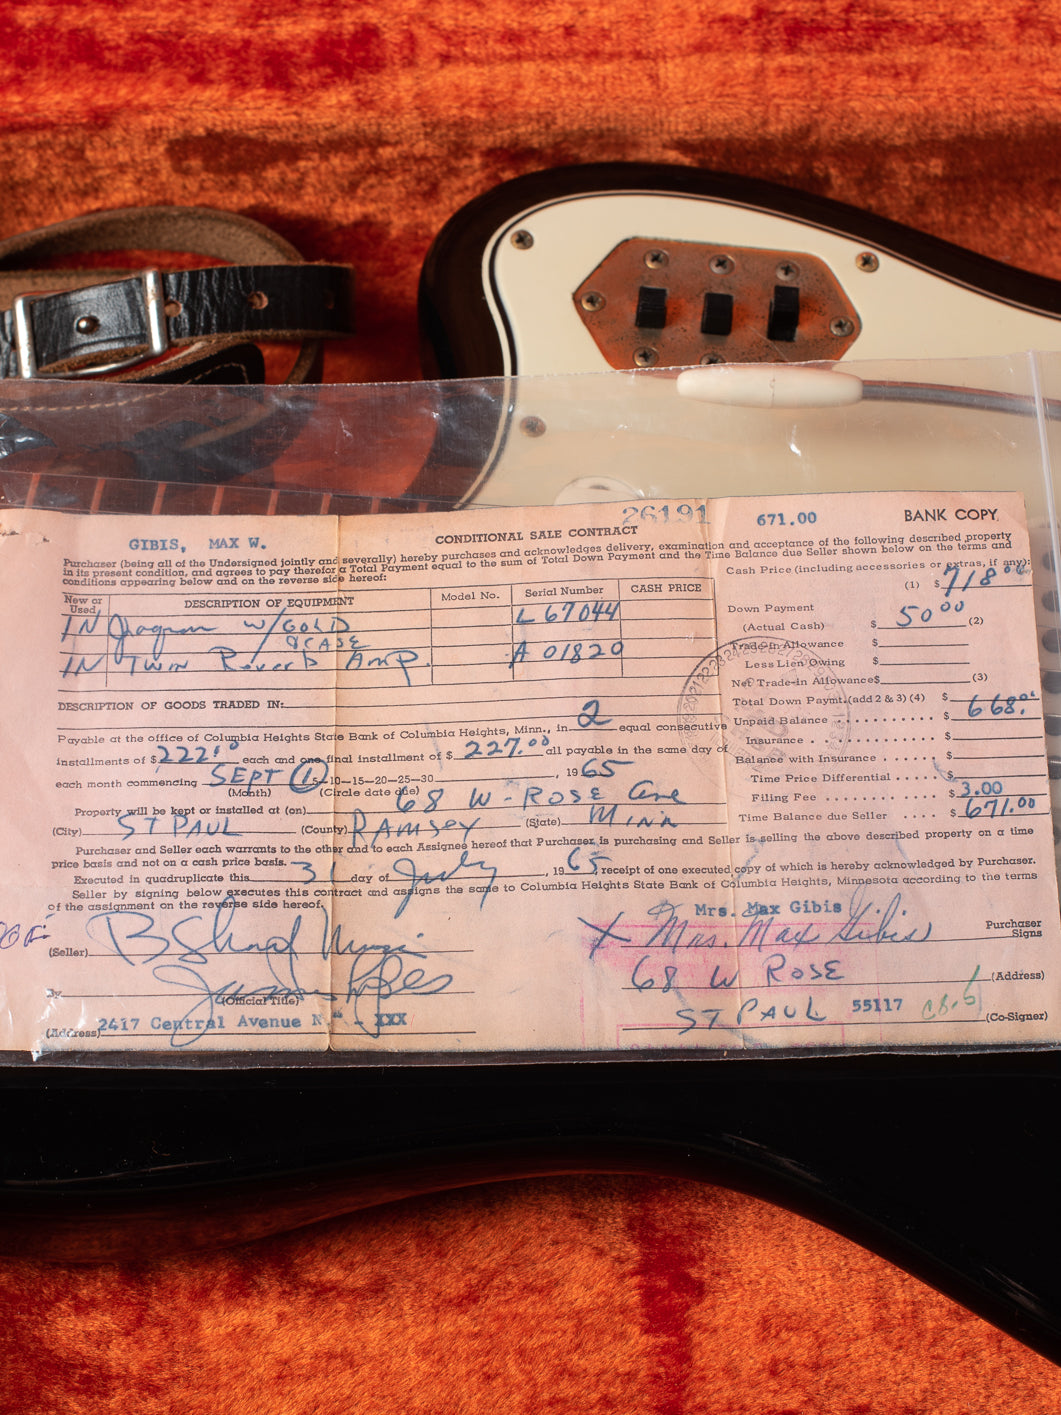 26191
GIBIS, MAX W.
CONDITIONAL SALE CONTRACT
671.00
BANK COPY
Purchaser (being all of the Undersigned jointly and severally) hereby purchases and acknowledges delivery, examination and acceptance of the following described property
in its present condition, and agrees to pay therefor a Total Payment equal to the sum of Total Down Payment and the Time Balance due Seller shown below on the terms and
conditions appearing below and on the reverse side hereof:
New or Used DESCRIPTION OF EQUIPMENT Model No. Serial Number CASH PRICE
1N Jaguar w/GOLD L 67044
&CASE
1N Twin Reverb Amp. A 01820
DESCRIPTION OF GOODS TRADED IN:
Payable at the office of Columbia Heights State Bank of Columbia Heights, Minn., in 2 equal consecutive
installments of $222.00 each and one final installment of $227.00 all payable in the same day of
each month commencing SEPT 1 5-10-15-20-25-30, 1965
(Month) (Circle date due)
Property will be kept or installed at (on) 68 W-ROSE Ave
(City) ST PAUL (County) RAMSEY (State) MINN
Purchaser and Seller each warrants to the other and to each Assignee hereof that Purchaser is purchasing and Seller is selling the above described property on a time
price basis and not on a cash price basis.
Executed in quadruplicate this 31 day of July, 1965, receipt of one executed copy of which is hereby acknowledged by Purchaser.
Seller by signing below executes this contract and assigns the same to Columbia Heights State Bank of Columbia Heights, Minnesota according to the terms
of the assignment on the reverse side hereof.
Cash Price (including accessories or extras, if any):
(1) $718.00
Down Payment
(Actual Cash) $ 50.00 (2)
Trade-in Allowance $
Less Lien Owing $
Net Trade-in Allowance $ (3)
Total Down Paymt. (add 2 & 3) (4) $
Unpaid Balance $ 668.00
Insurance $
Balance with Insurance $
Time Price Differential $
Filing Fee $ 3.00
Time Balance due Seller $ 671.00
(Seller)
By
(Official Title)
(Address) 2417 Central Avenue N
XXX
Mrs. Max Gibis
X Mrs. Max Gibis Purchaser Signs
68 W ROSE (Address)
ST PAUL 55117 (Co-Signer)